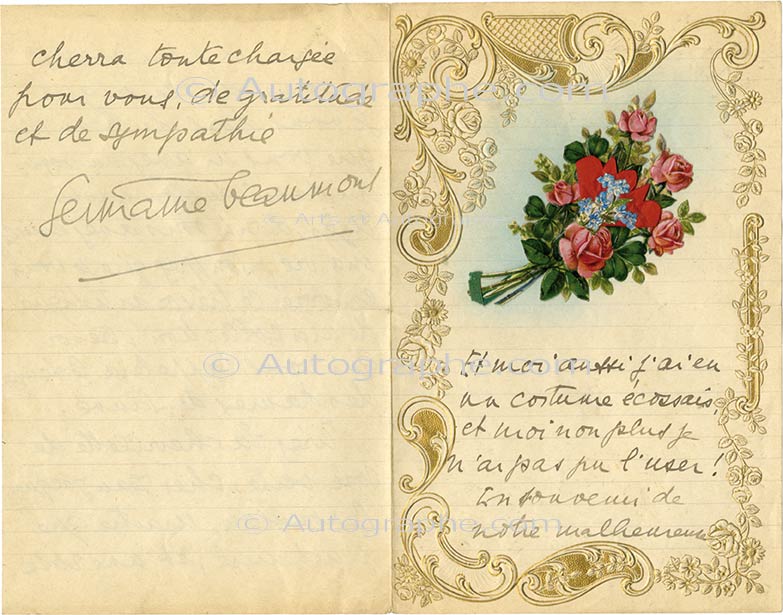 cherra toute chargée
pour vous, de gratitude
et de sympathie
Germaine Beaumont
Et moi aussi j'ai eu
un costume écossais,
et moi non plus je
n'ai pas pu l'user!
En souvenir de
notre malheureuse
© Autographe.com
© Arts et Autographes
© Autographe.com
© Autographe.com